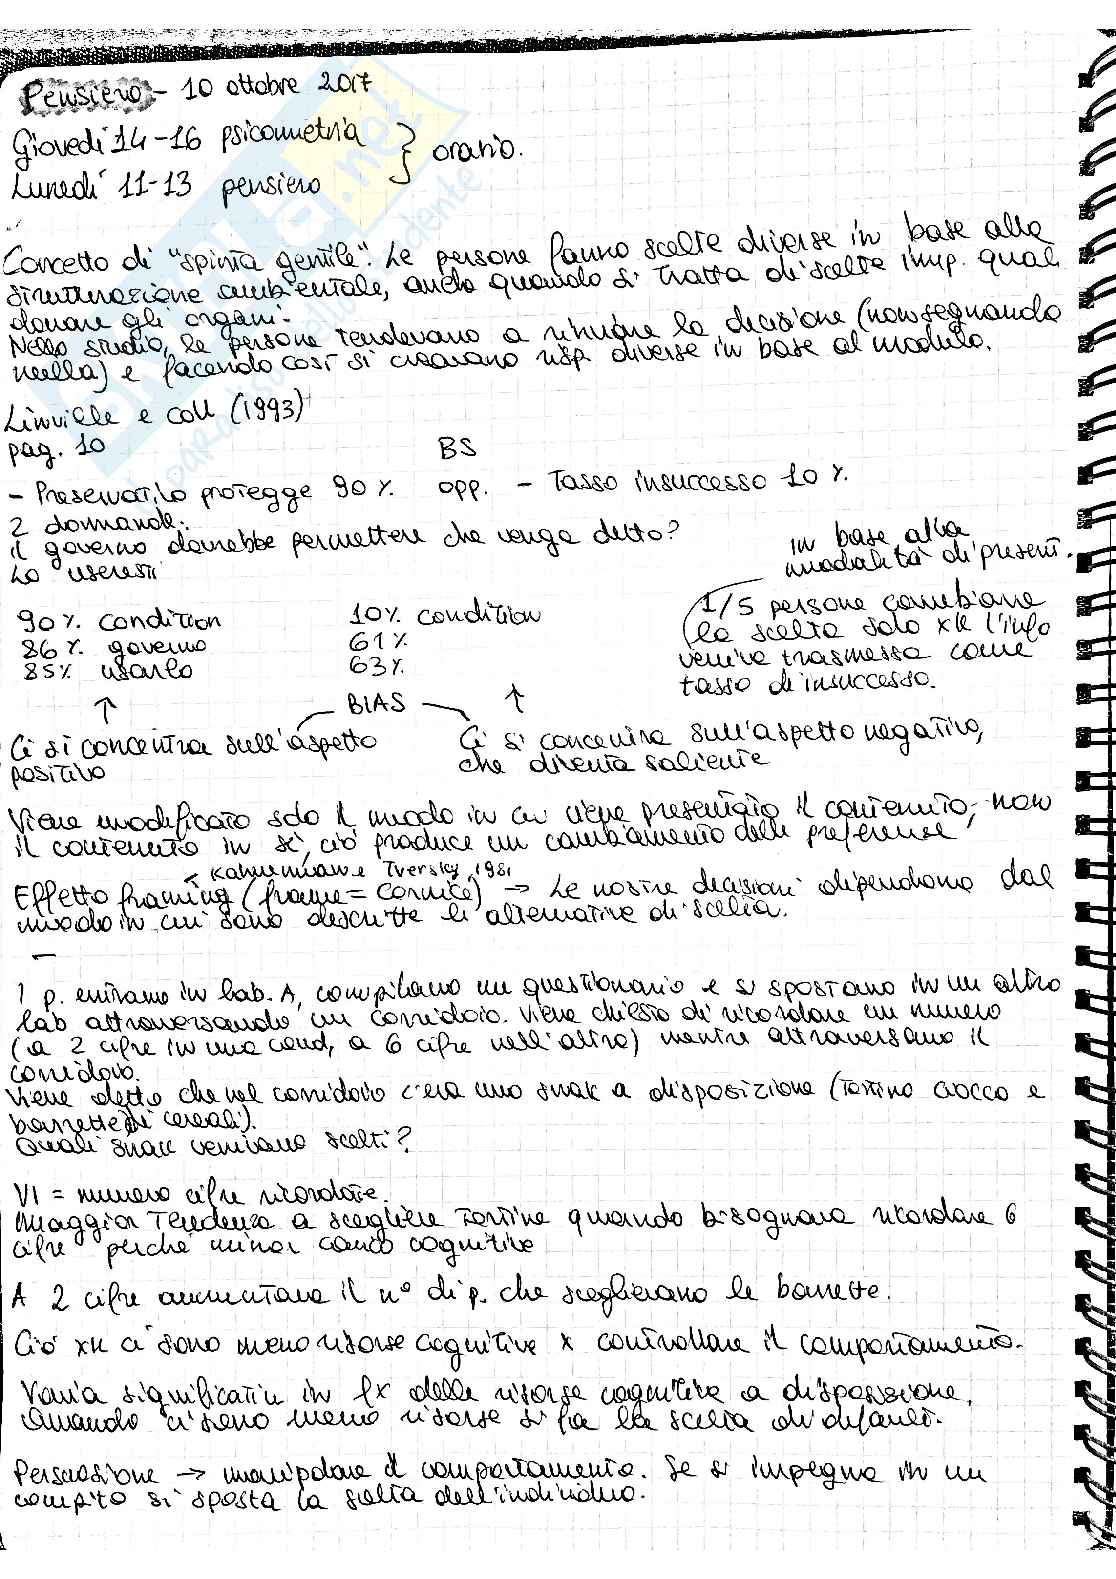 Pensiero - 10 ottobre 2017
Giovedì 14-16 psicometria
Lunedì 11-13 pensiero
} orario.
Concetto di "spinta gentile". Le persone fanno scelte diverse in base alla
strutturazione ambientale, anche quando si tratta di scelte imp. quali
donare gli organi.
Nello studio, le persone tendevano a rinviare la decisione (non segnando
nulla) e facendo così si creavano risp. diverse in base al modulo.
Linville e coll (1993)
pag. 10
BS
- Preservativo protegge 90% opp. - Tasso insuccesso 10%.
2 domande:
il governo dovrebbe permettere che venga detto?
Lo useresti
in base alla
modalità di present.
90% condition
86% governo
85% usarlo
10% condition
61%
63%
1/5 persone cambiano
la scelta solo xk l'info
veniva trasmessa come
tasso di insuccesso.
↑ BIAS ↑
Ci si concentra sull'aspetto
positivo
Ci si concentra sull'aspetto negativo,
che diventa saliente
Viene modificato solo il modo in cui viene presentato il contenuto, non
il contenuto in sé, ciò produce un cambiamento delle preferenze
Kahneman e Tversky, 1981
Effetto framing (frame = cornice) → Le nostre decisioni dipendono dal
modo in cui sono descritte le alternative di scelta.
-
I p. entrano in lab. A, compilano un questionario e si spostano in un altro
lab attraversando un corridoio. Viene chiesto di ricordare un numero
(a 2 cifre in una cond, a 6 cifre nell'altra) mentre attraversano il
corridoio.
Viene detto che nel corridoio c'era uno snak a disposizione (tortino ciocco e
barrette di cereali).
Quali snack venivano scelti?
VI = numero cifre ricordate.
Maggior tendenza a scegliere tortine quando bisognava ricordare 6
cifre perché minor carico cognitivo
A 2 cifre aumentava il n° di p. che sceglievano le barrette.
Ciò xk ci sono meno risorse cognitive x controllare il comportamento.
Varia significativ in fx delle risorse cognitive a disposizione,
Quando ci sono meno risorse si fa la scelta di default.
Persuasione → manipolare il comportamento. Se si impegna in un
compito si sposta la scelta dell'individuo.